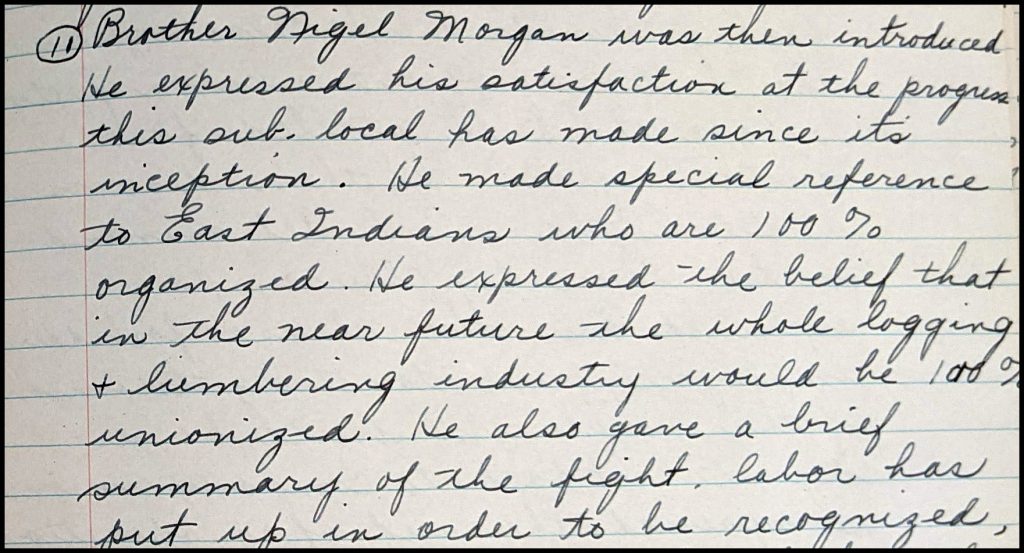 (11) Brother Nigel Morgan was then introduced
He expressed his satisfaction at the progress
this sub. local has made since its
inception. He made special reference
to East Indians who are 100%
organized. He expressed the belief that
in the near future the whole logging
+ lumbering industry would be 100%
unionized. He also gave a brief
summary of the fight. labor has
put up in order to be recognized,